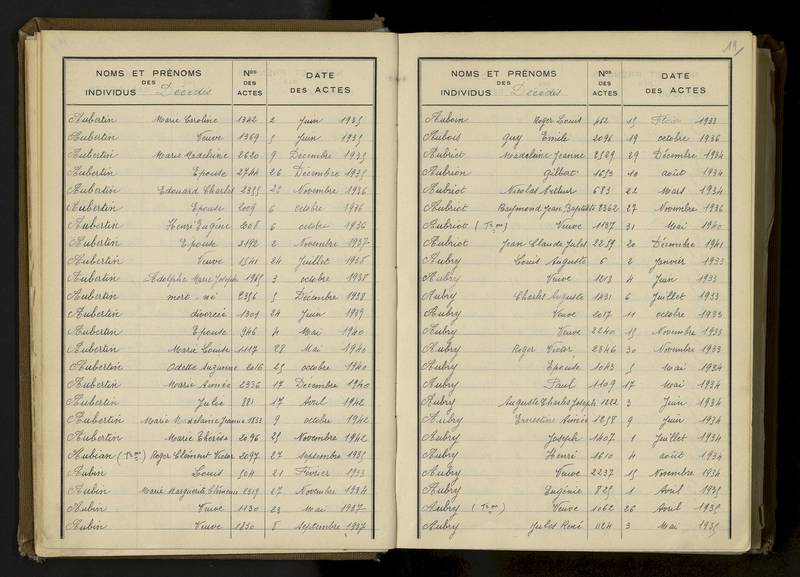 NOMS ET PRÉNOMS DES INDIVIDUS Décédés Nos DES ACTES DATE DES ACTES
Aubertin Marie Caroline 1342 2 Juin 1935
Aubertin Veuve 1369 5 Juin 1935
Aubertin Marie Madeleine 2620 9 Décembre 1935
Aubertin Epouse 2744 26 Décembre 1935
Aubertin Edouard Charles 2355 22 Novembre 1936
Aubertin Epouse 2009 6 octobre 1936
Aubertin Henri Eugène 2008 6 octobre 1936
Aubertin Epouse 2192 2 Novembre 1937
Aubertin Veuve 1541 24 Juillet 1938
Aubertin Adolphe Marie Joseph 1965 3 octobre 1938
Aubertin mort né 2356 5 Décembre 1938
Aubertin divorcée 1301 24 Juin 1939
Aubertin Epouse 946 4 Mai 1940
Aubertin Marie Louise 1117 28 Mai 1940
Aubertin Odette Suzanne 2016 25 octobre 1940
Aubertin Marie Aimée 2336 17 Décembre 1940
Aubertin Julie 881 17 Avril 1942
Aubertin Marie Madelaine Jeanne 1833 9 octobre 1942
Aubertin Marie Thérèse 2096 25 Novembre 1942
Aubian (Tron) Roger Clément Victor 2097 27 septembre 1935
Aubin Louis 504 21 Février 1933
Aubin Marie Marguerite 2319 27 Novembre 1934
Aubin Veuve 1130 23 Mai 1937
Aubin Veuve 1830 8 septembre 1937
19/
NOMS ET PRÉNOMS DES INDIVIDUS Décédés Nos DES ACTES DATE DES ACTES
Auboin Roger Louis 462 15 Février 1933
Aubois Guy Emile 2096 19 octobre 1936
Aubriet Madeleine Jeanne 2529 29 Décembre 1934
Aubrion Gilbert 1653 10 août 1934
Aubriot Nicolas Arthur 683 22 Mars 1934
Aubriot Raymond Jean Baptiste 2362 27 Novembre 1936
Aubriot (Tron) Veuve 1137 31 Mai 1940
Aubriot Jean Claude Jules 2259 20 Décembre 1941
Aubry Louis Auguste 6 2 Janvier 1933
Aubry Veuve 1213 4 Juin 1933
Aubry Charles Auguste 1431 6 Juillet 1933
Aubry Veuve 2017 11 octobre 1933
Aubry Veuve 2240 15 Novembre 1933
Aubry Roger Victor 2346 30 Novembre 1933
Aubry Epouse 1043 5 Mai 1934
Aubry Paul 1109 17 Mai 1934
Aubry Auguste Charles Joseph 1222 3 Juin 1934
Aubry Ernestine Aimée 1258 9 Juin 1934
Aubry Joseph 1407 1 Juillet 1934
Aubry Henri 1610 4 août 1934
Aubry Veuve 2237 15 Novembre 1934
Aubry Eugénie 825 1 Avril 1935
Aubry (Tron) Veuve 1062 26 Avril 1935
Aubry Jules René 1124 3 Mai 1935